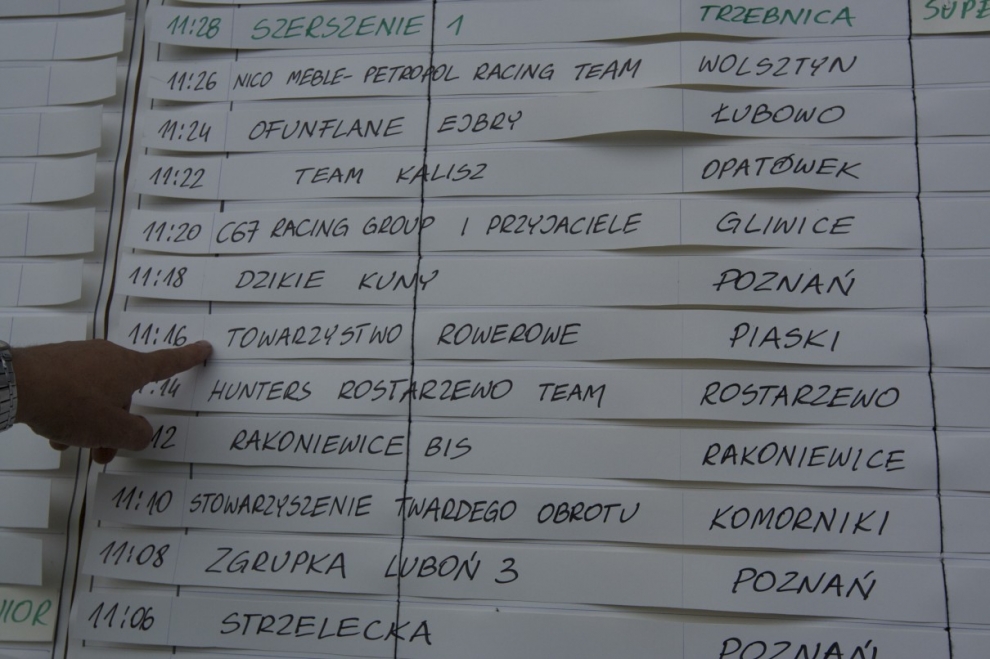 11:28 SZERSZENIE 1 TRZEBNICA SUPE
11:26 NICO MEBLE- PETROPOL RACING TEAM WOLSZTYN
11:24 OFUNFLANE EJBRY ŁUBOWO
11:22 TEAM KALISZ OPATÓWEK
11:20 CG7 RACING GROUP I PRZYJACIELE GLIWICE
11:18 DZIKIE KUNY POZNAŃ
11:16 TOWARZYSTWO ROWEROWE PIASKI
:14 HUNTERS ROSTARZEWO TEAM ROSTARZEWO
12 RAKONIEWICE BIS RAKONIEWICE
11:10 STOWARZYSZENIE TWARDEGO OBROTU KOMORNIKI
11:08 ZGRUPKA LUBOŃ 3 POZNAŃ
NIOR 11:06 STRZELECKA POZNAŃ